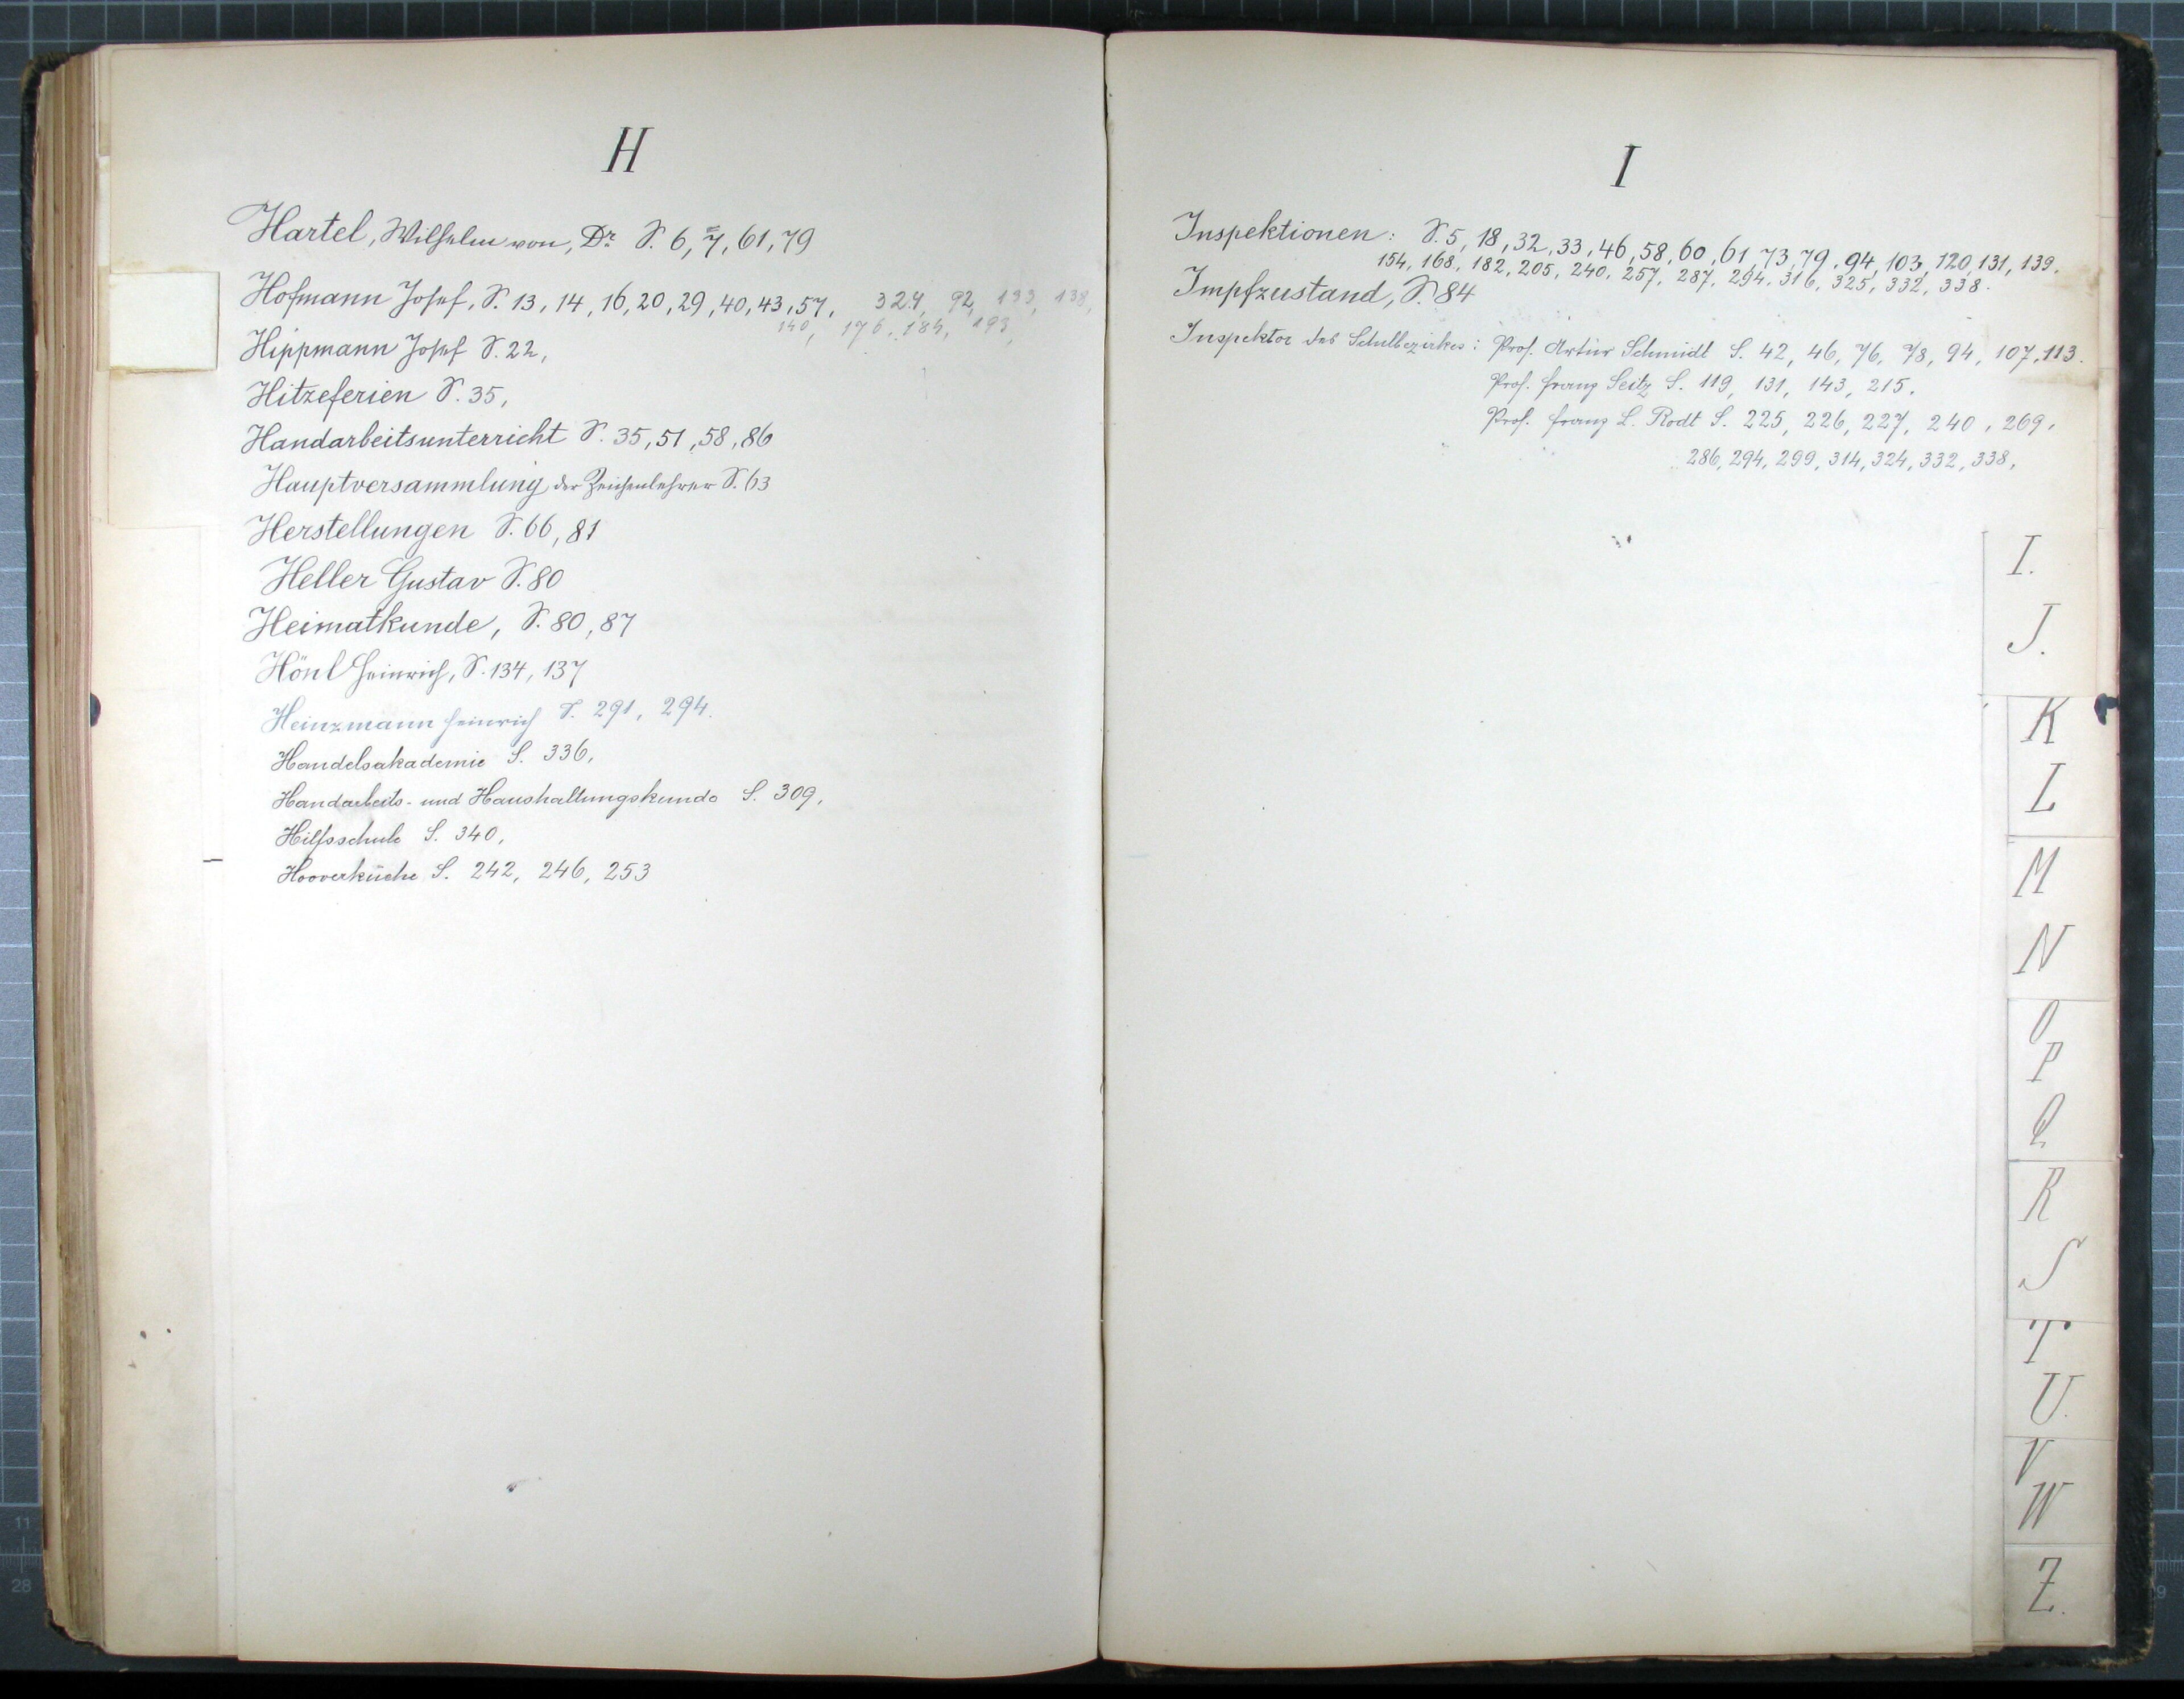 H
Hartel, Wilhelm von, Dr. S. 6, 7, 61, 79
Hofmann Josef, S. 13, 14, 16, 20, 29, 40, 43, 57, 324, 92, 133, 138,
140, 176, 184, 193,
Hippmann Josef S. 22,
Hitzeferien S. 35,
Handarbeitsunterricht S. 35, 51, 58, 86
Hauptversammlung der Zeichenlehrer S. 63
Herstellungen S. 66, 81
Heller Gustav S. 80
Heimatkunde, S. 80, 87
Hönl Heinrich, S. 134, 137
Heinzmann Heinrich S. 291, 294.
Handelsakademie S. 336,
Handarbeits- und Haushaltungskunde S. 309,
Hilfsschule S. 340,
Hooverküche S. 242, 246, 253
I
Inspektionen: S. 5, 18, 32, 33, 46, 58, 60, 61, 73, 79, 94, 103, 120, 131, 139.
154, 168, 182, 205, 240, 257, 287, 294, 316, 325, 332, 338.
Impfzustand, S. 84
Inspektor des Schulbezirkes: Prof. Artur Schmidt S. 42, 46, 76, 78, 94, 107, 113.
Prof. Franz Seitz S. 119, 131, 143, 215.
Prof. Franz L. Rodt S. 225, 226, 227, 240, 269,
286, 294, 299, 314, 324, 332, 338,
I.
J.
K
L
M
N
O
P
Q
R
S
T
U.
V
W
Z.
11
28